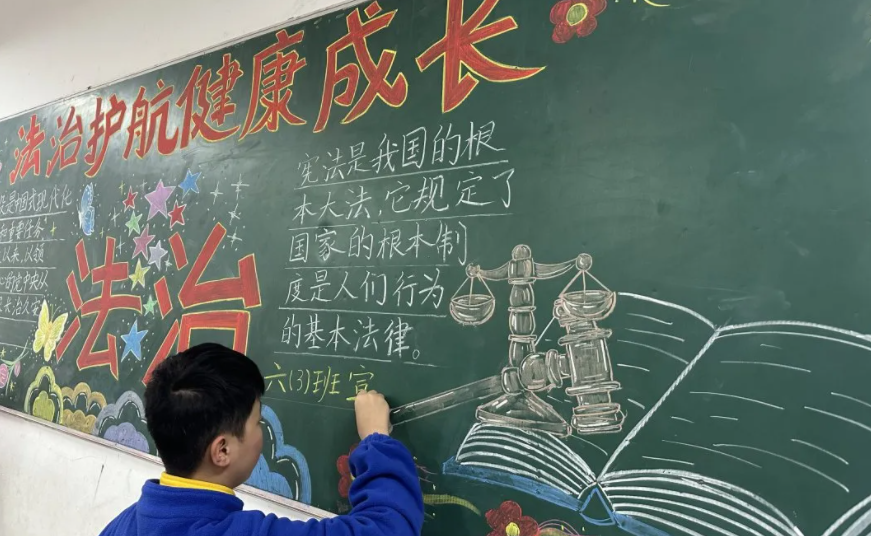 法治护航健康成长
是中国式现代化
重要任务
以来,以镇
法治
宪法是我国的根
本大法,它规定了
国家的根本制
度是人们行为
的基本法律。
六(3)班宣